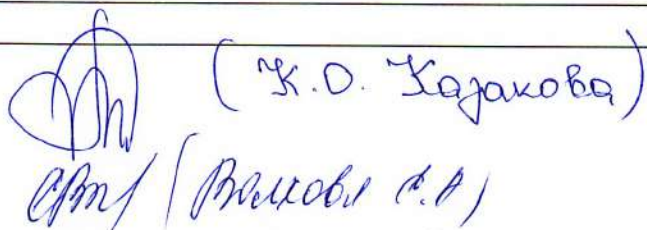 (К.О. Казакова)
(Волкова С.А)